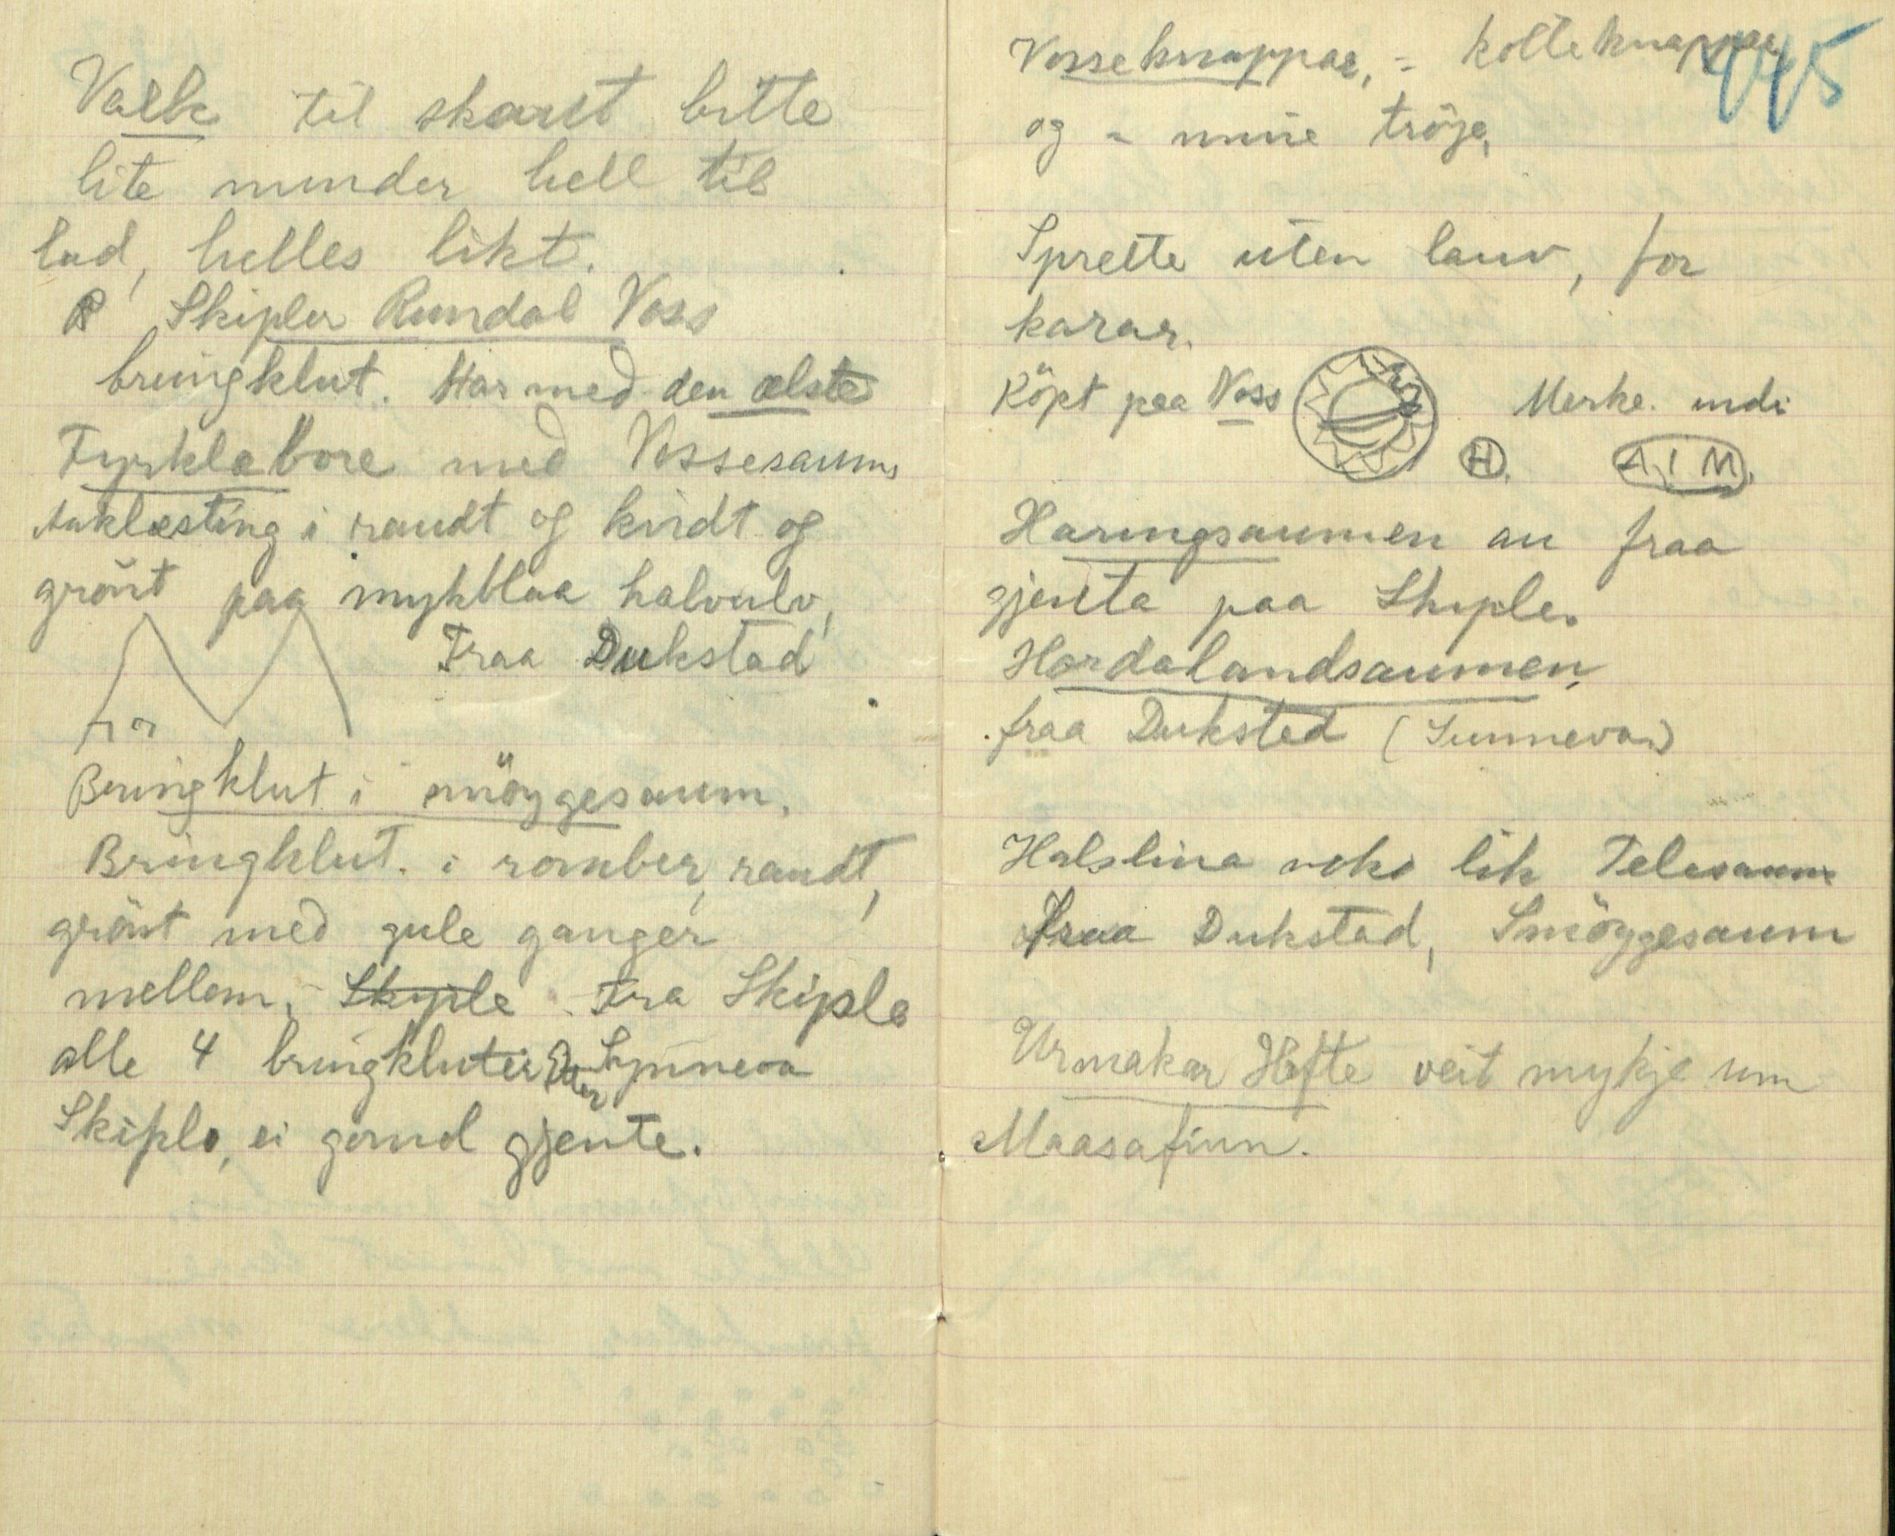 Valk til skaut bitte
lite minder hell til
lad, helles likt.
Skipler Rundal Voss
bringklut. Har med den ælste
Fyrklabore med Vossesaum,
i raudt og kvidt og
grönt paa mykblaa halvulv,
Fraa Dukstad
Bringklut i smöygesaum.
Bringklut. i romber, raudt,
grönt med gule ganger
mellem. Skiple Fra Skiple
alle 4 bringkluter Etter Synneva
Skiple, ei gomul gjente.
445
Vosseknappar, = kolteknappar
og - mine tröje,
Sprette uten lauv, for
karar.
Köpt paa Voss Merke. indi
H. A I M.
Haringsaumen au fraa
gjenta paa Skiple.
Hordalandsaumen,
fraa Dukstad (Sunneva)
Halslina noko lik Telesaum
fraa Dukstad, Smöygesaum
Urmakar Hefte veit mykje um
Maasafinn.